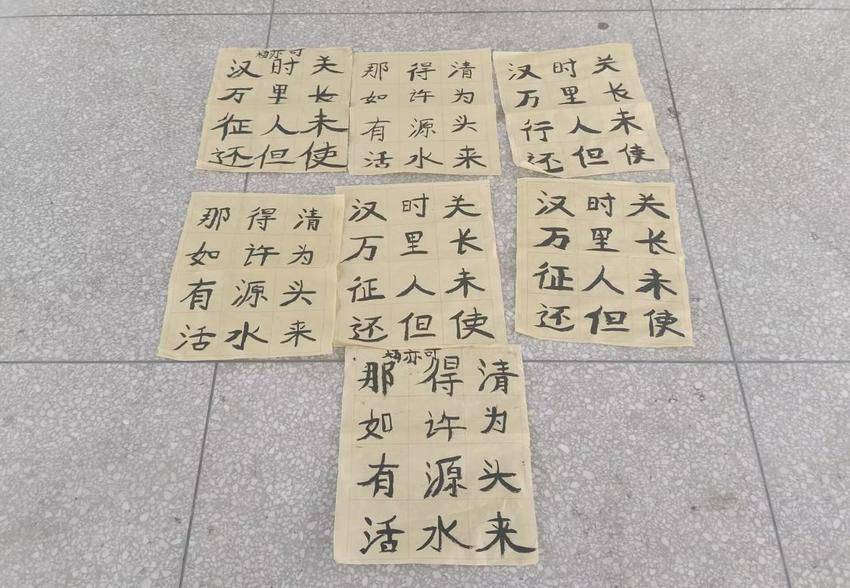 杨亦可
汉时关
万里长
征人未
还但使
那得清
如许为
有源头
活水来
汉时关
万里长
行人未
还但使
那得清
如许为
有源头
活水来
汉时关
万里长
征人未
还但使
汉时关
万里长
征人未
还但使
杨亦可
那得清
如许为
有源头
活水来